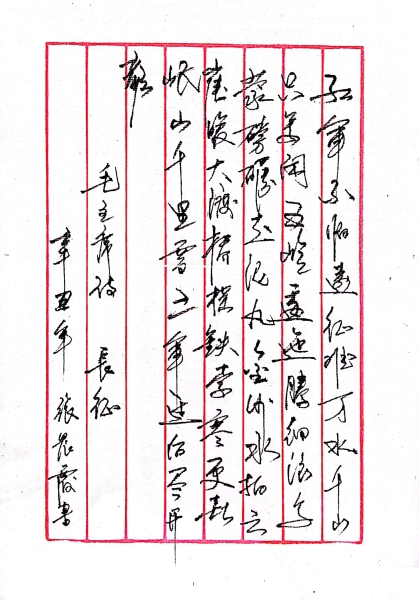 红軍不怕遠征难万水千山
只等闲五岭逶迤腾细浪乌
蒙磅礴走泥丸金沙水拍云
崖暖大渡桥横鉄索寒更喜
岷山千里雪三軍过后尽开
颜
毛主席诗 長征
辛丑年 张霞书